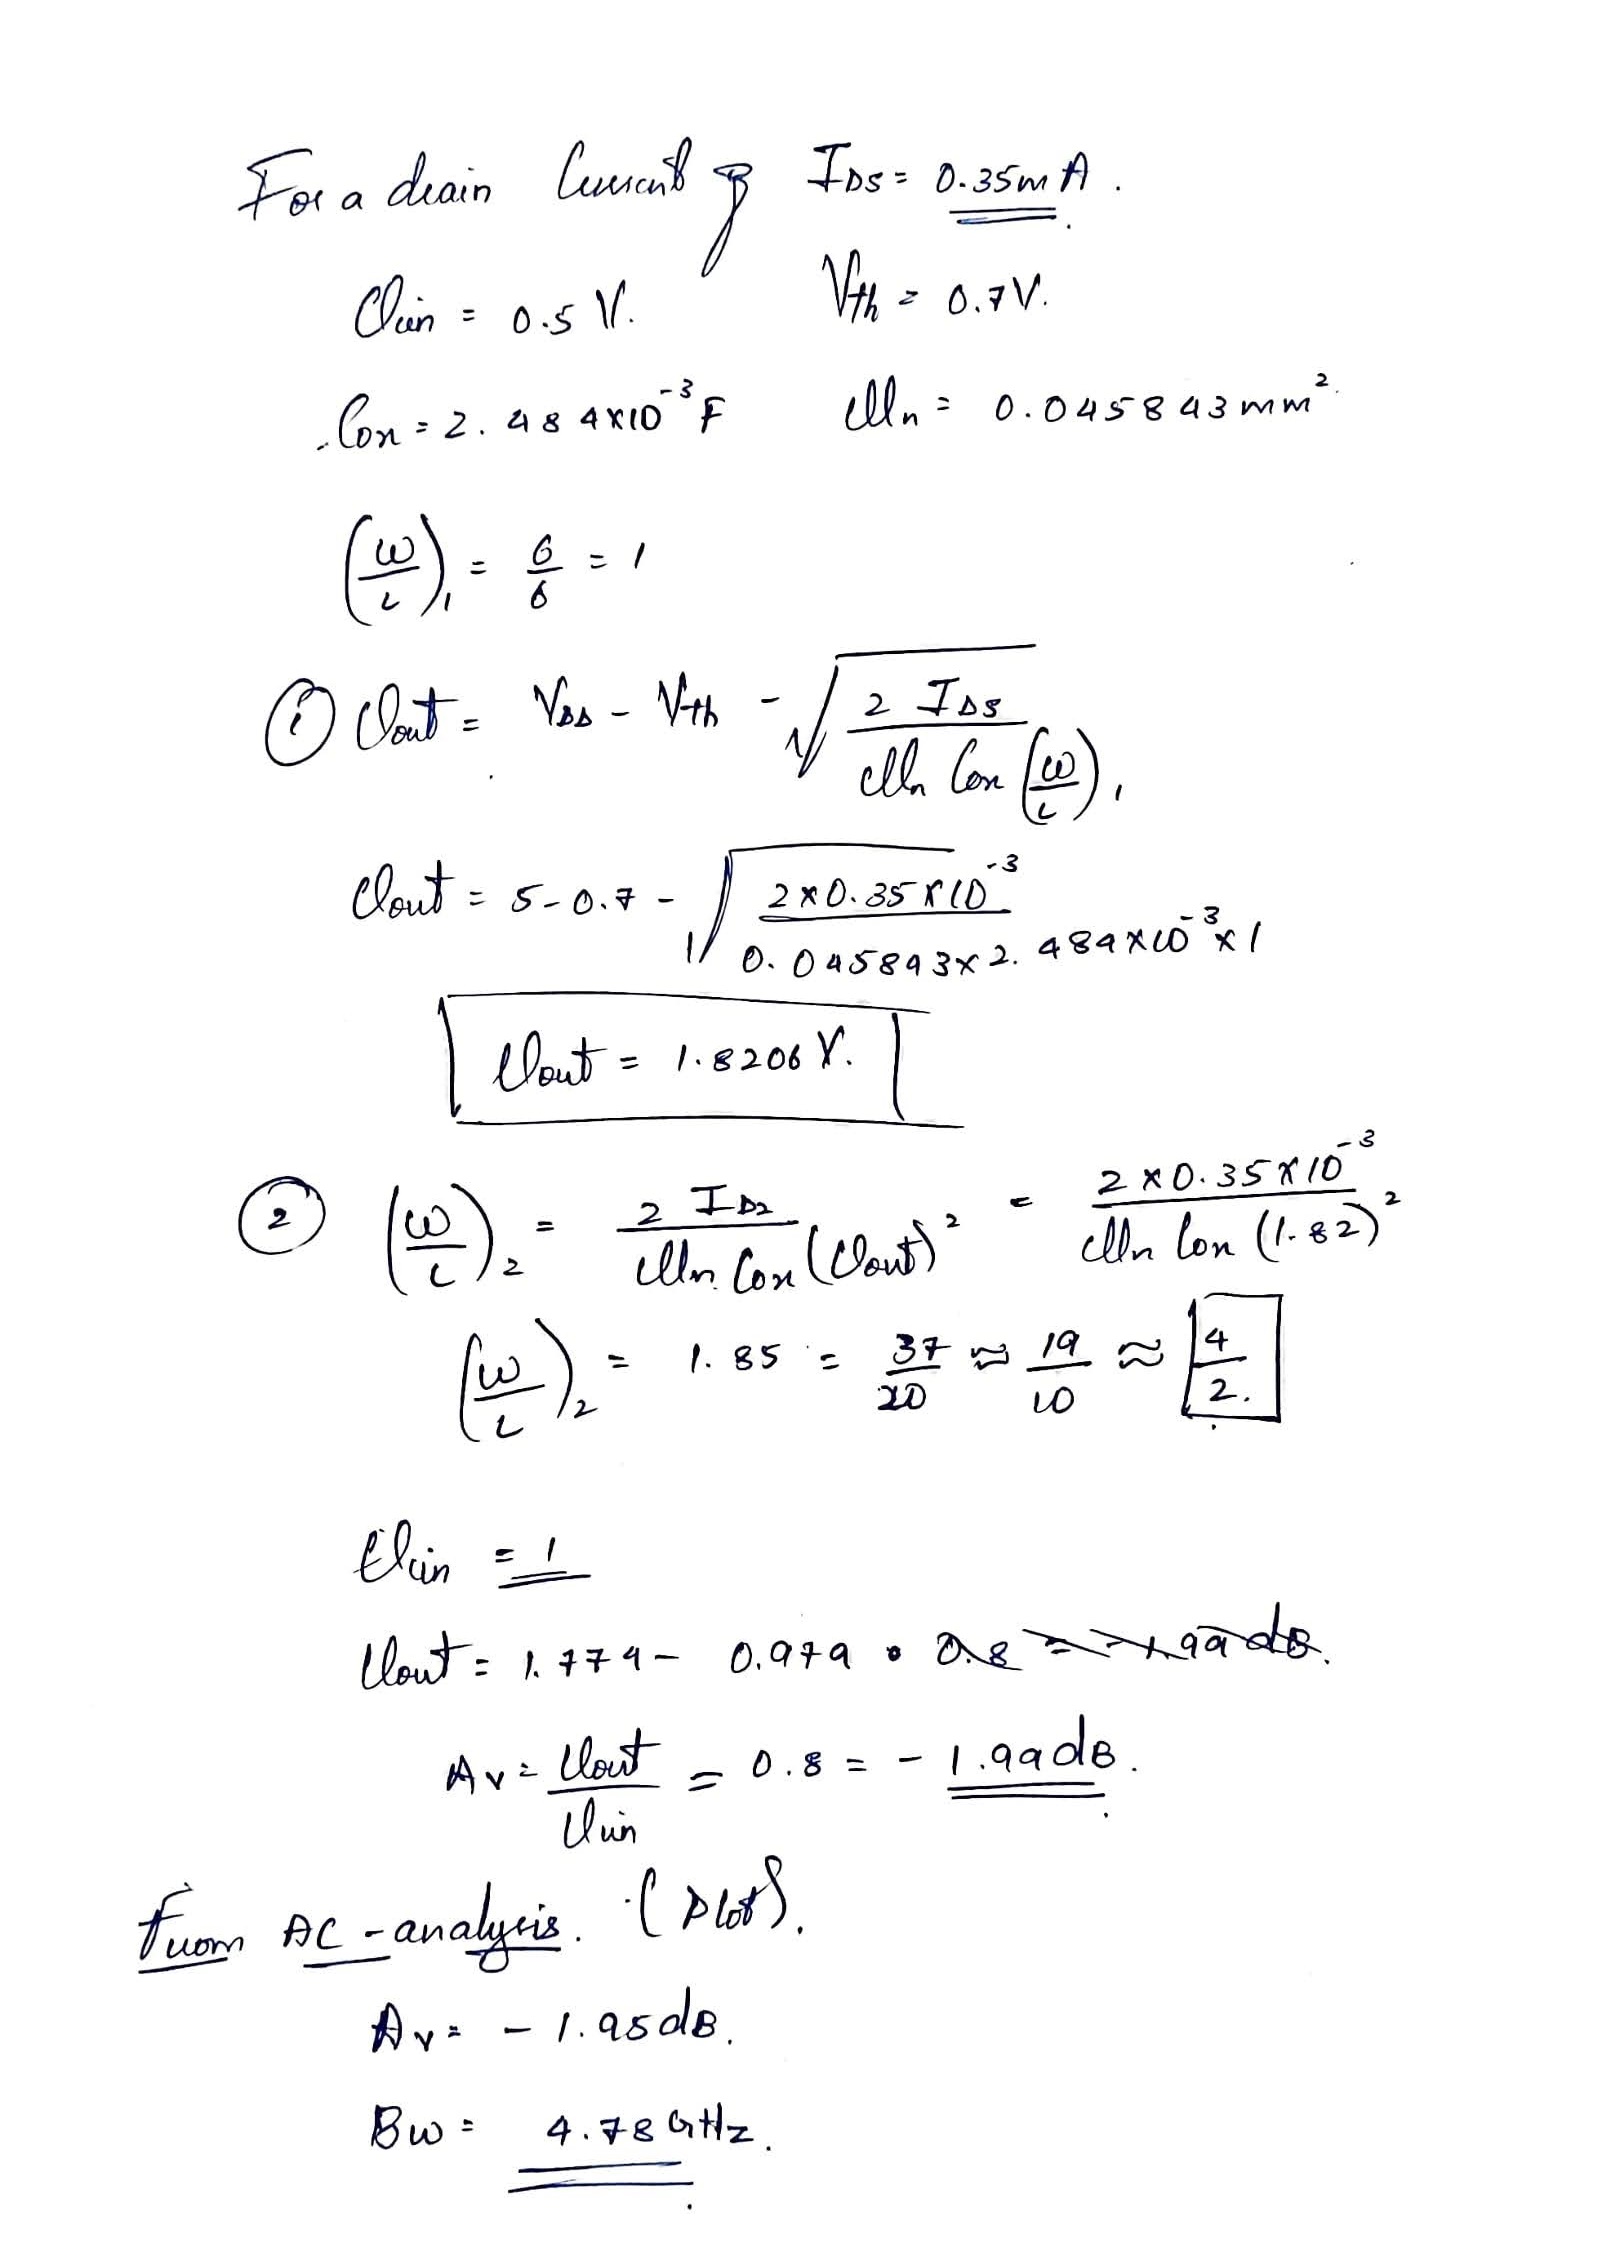 For a drain Current of IDS = 0.35mA.
Vin = 0.5 V. Vth = 0.7V.
Cox = 2.484x10^-3 F μn = 0.045843mm^2
(W/L)1 = 6/6 = 1
① Vout = VDD - Vth - √(2 IDS / μn Cox (W/L)1)
Vout = 5-0.7 - √(2x0.35x10^-3 / 0.045843x2.484x10^-3x1)
Vout = 1.8206 V.
② (W/L)2 = 2 ID2 / μn Cox (Vout)^2 = 2x0.35x10^-3 / μn Cox (1.82)^2
(W/L)2 = 1.85 = 37/20 ≈ 19/10 ≈ 4/2.
Vin = 1
Vout = 1.779 - 0.979 = 0.8
Av = Vout/Vin = 0.8 = -1.99dB.
From AC-analysis. (Plot).
Av = -1.95dB.
Bw = 4.78 GHz.